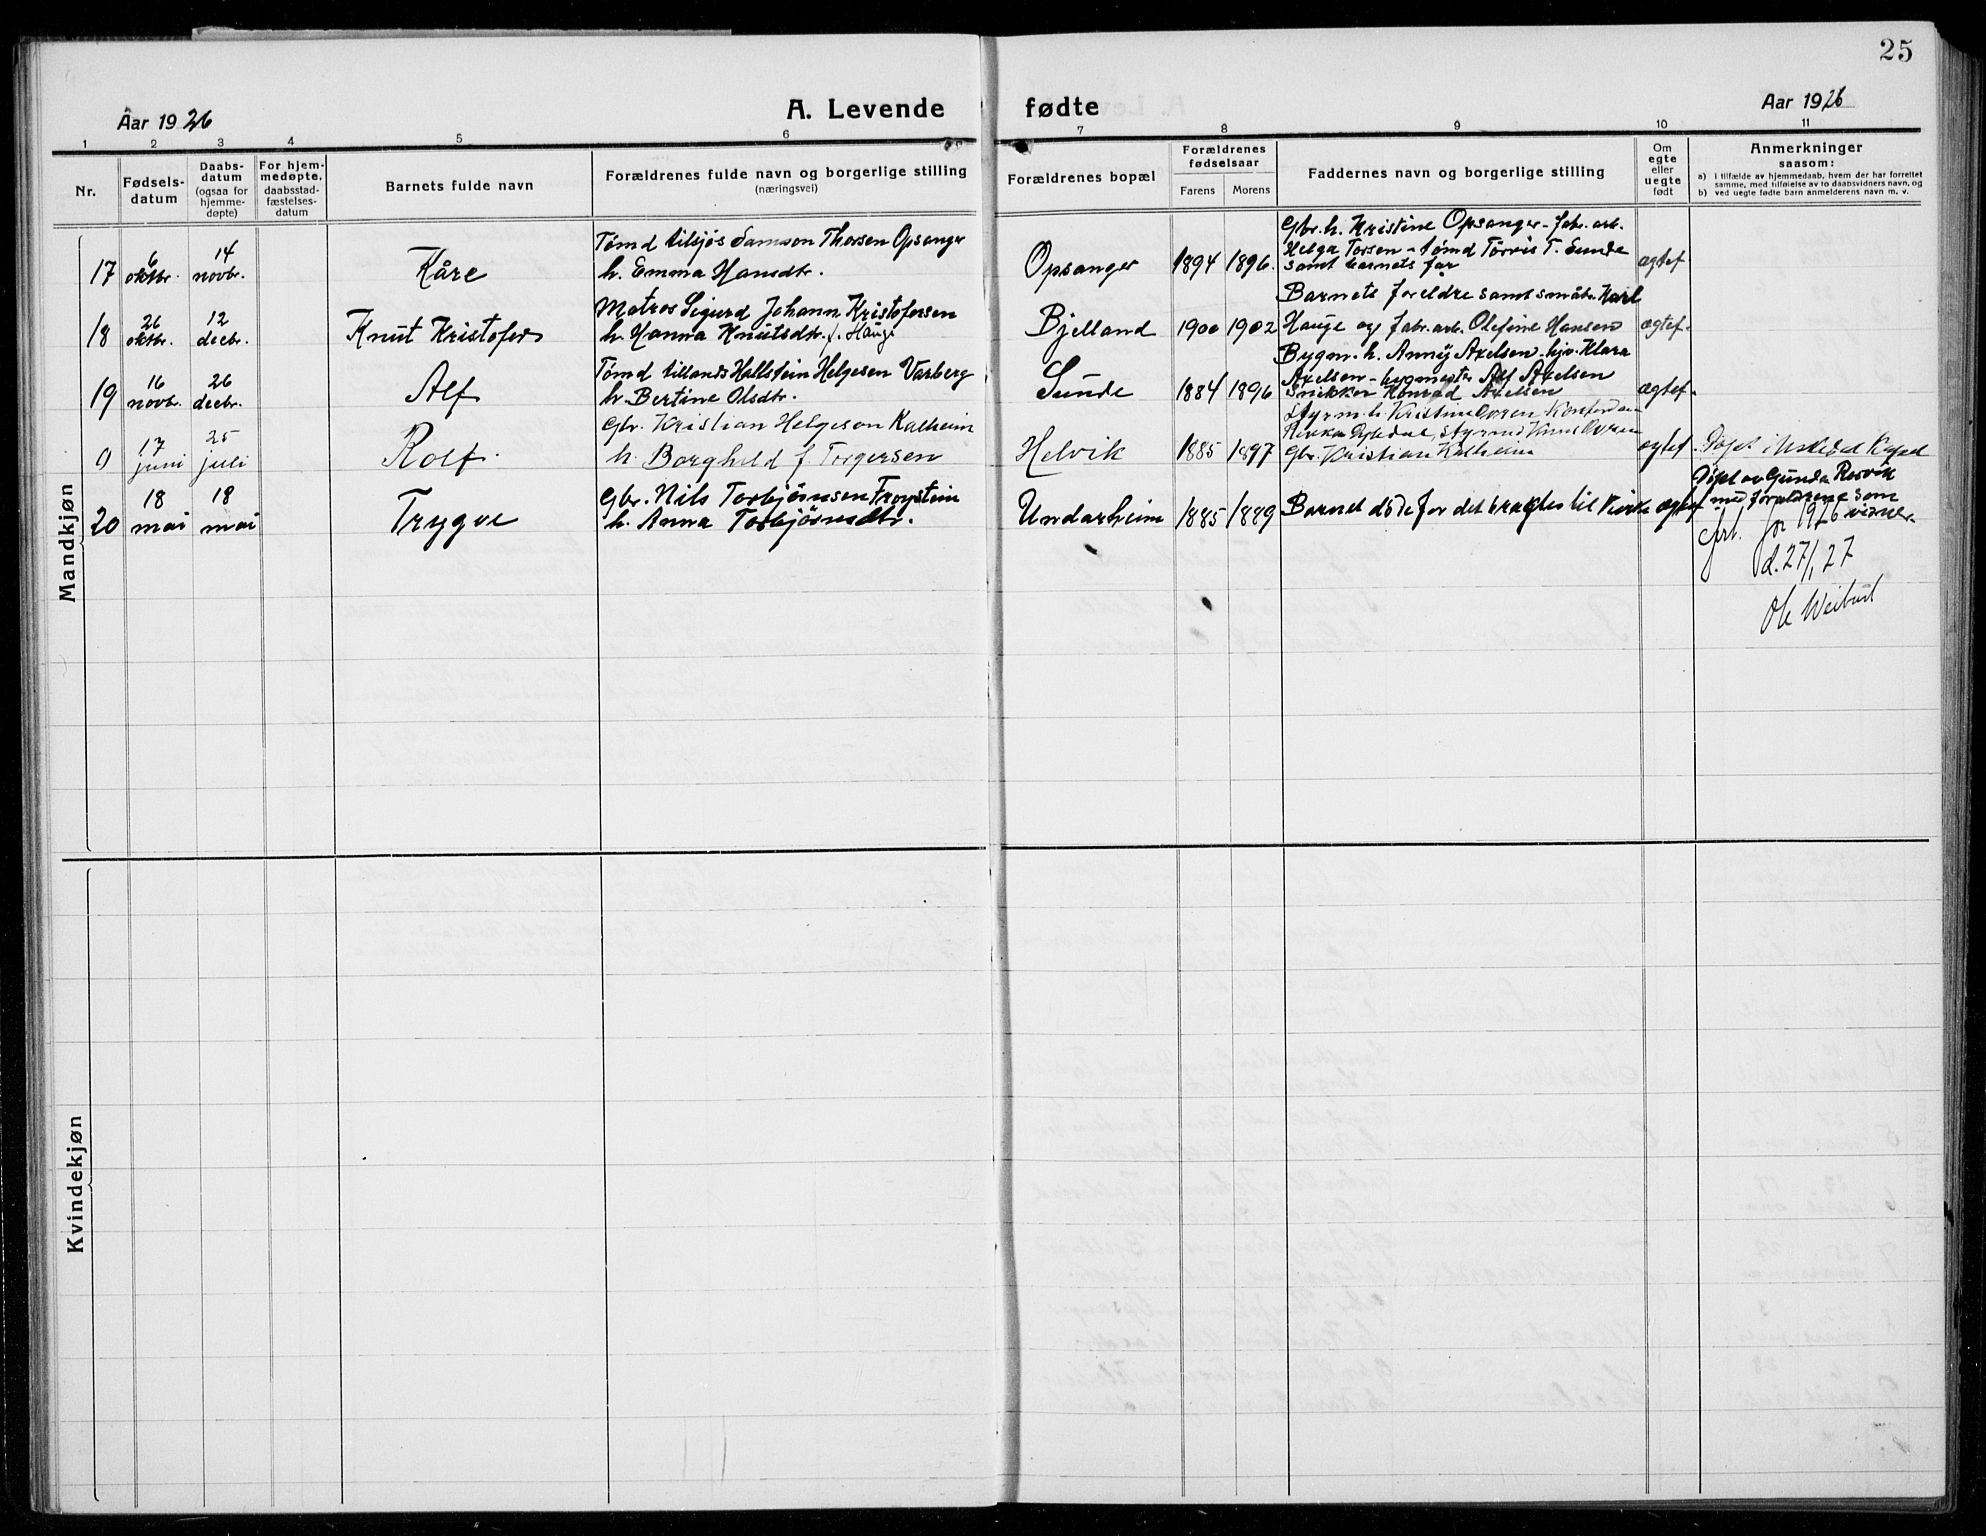 25
Aar 1926
A. Levende fødte
Aar 1926
1 2 3 4 5 6 7 8 9 10 11
Nr.
Fødsels-
datum
Daabs-
datum
(ogsaa for
hjemme-
døpte)
For hjem-
medøpte,
daabsstad-
fæstelses-
datum
Barnets fulde navn
Forældrenes fulde navn og borgerlige stilling
(næringsvei)
Forældrenes bopæl
Forældrenes
fødselsaar
Farens Morens
Faddernes navn og borgerlige stilling
Om
egte
eller
uegte
født
Anmerkninger
saasom:
a) i tilfælde av hjemmedaab, hvem der har forrettet
samme, med tilføielse av to daabsvidners navn, og
b) ved uegte fødte barn anmelderens navn m. v.
Mandkjøn
17
6
oktbr.
14
novbr.
Kåre
Tømd tilsjøs Samson Thorsen Opsanger
h. Emma Hansdtr.
Opsanger
1894 1896.
Gbr. h. Kristine Opsanger - fabr. arb.
Helga Torsen - tømd Torris T. Sunde
samt barnets far
ægtef
18
26
oktbr.
12
decbr.
Knut Kristofer
Matros Sigurd Johann Kristofersen
h. Hanna Knutsdtr. f. Hauge
Bjelland
1900 1902
Barnets foreldre samt småbr. Karl
Hauge og fabr. arb. Olefine Hansen
ægtef.
19
16
novbr.
26
decbr.
Alf
Tømd tillands Hallstein Helgesen Varberg
h. Bertine Olsdtr.
Sunde
1884 1896
Bygm. h. Anny Axelsen - hjv. Klara
Axelsen - bygmester Alf Axelsen
Snikker Konrad Axelsen
ægtef.
0
17
juni
25
juli
Rolf.
Gbr. Kristian Helgeson Kalheim
h. Borghild f Torgersen
Helvik
1885 1897
Styrm. h. Kristine
Gbr. Kristian Kalheim
ægtef.
Døpt i
20
18
mai
18
mai
Trygve
Gbr. Nils Torbjørnsen Frøystein
h. Anna Torbjørnsdtr.
Undarheim
1885 1889
Barnet døde før det bragtes til kirke
ægtef
Døpt av Gunda Røsvik
med forældrene som
vidner.
for 1926
d. 27/1 27
Ole
Kvindekjøn